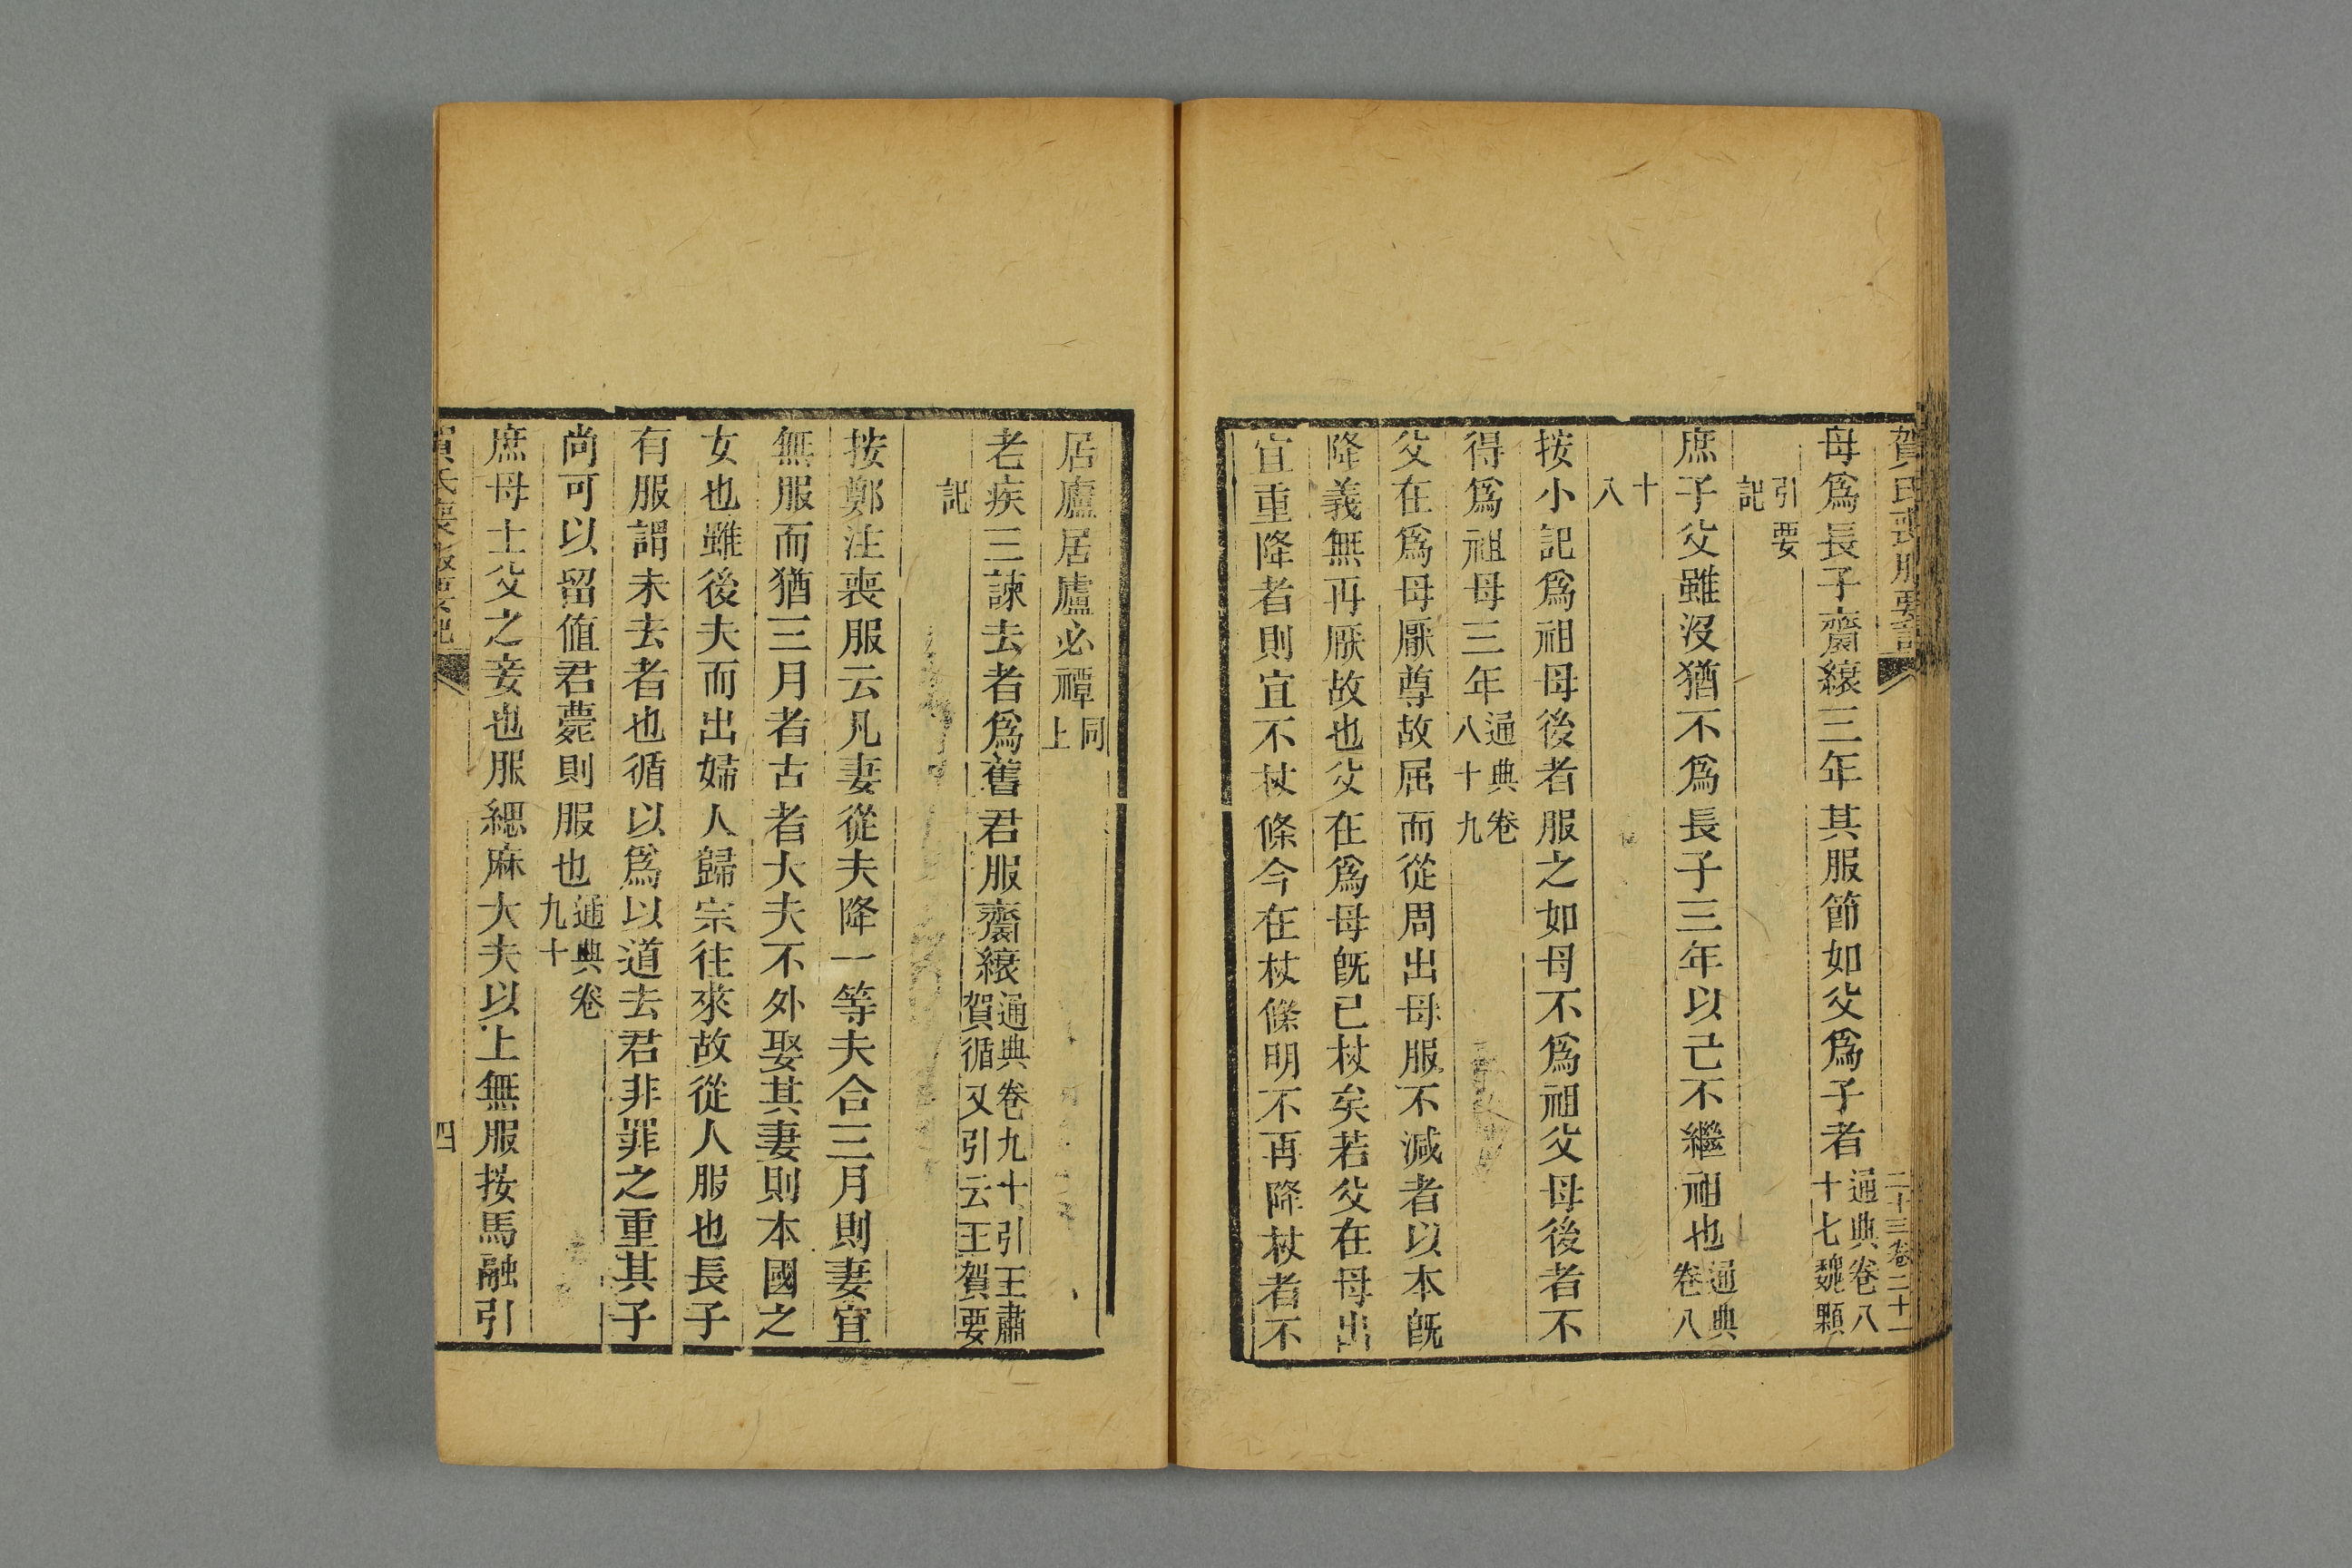 賀氏喪服要記
二十三卷二十一
母爲長子齋縗三年其服節如父爲子者通典卷八十七魏顆
引要記
庶子父雖沒猶不爲長子三年以己不繼祖也通典卷八
十八
按小記爲祖母後者服之如母不爲祖父母後者不
得爲祖母三年通典卷八十九
父在爲母厭尊故屈而從周出母服不減者以本旣
降義無再厭故也父在爲母旣已杖矣若父在母出
宜重降者則宜不杖條今在杖條明不再降杖者不
居廬居廬必禫同上
老疾三諫去者爲舊君服齋縗通典卷九十引王肅賀循又引云王賀要
記
按鄭注喪服云凡妻從夫降一等夫合三月則妻宜
無服而猶三月者古者大夫不外娶其妻則本國之
女也雖後夫而出婦人歸宗往來故從人服也長子
有服謂未去者也循以爲以道去君非罪之重其子
尚可以留值君薨則服也通典卷九十
庶母士父之妾也服緦麻大夫以上無服按馬融引
賀氏喪服要記
四